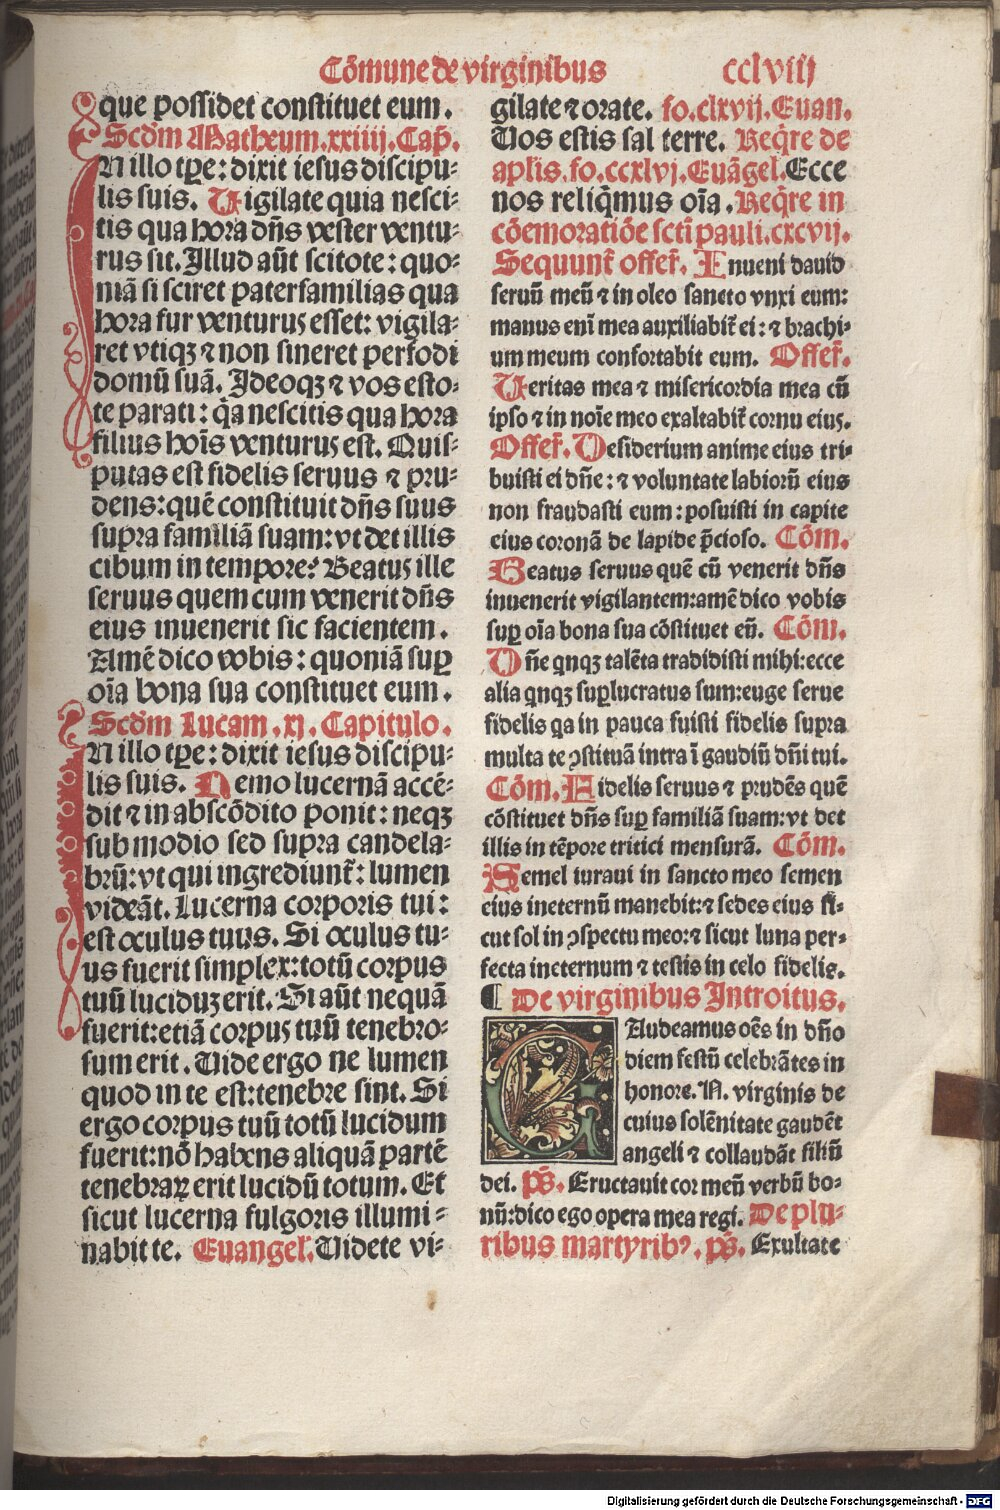 Cōmune de virginibus cclviij
que possidet constituet eum.
Scđm Matheum.xxiiij.Cap̄.
IN illo tꝑe: dixit iesus discipu⸗
lis suis. Vigilate quia nesci⸗
tis qua hora dn̄s vester ventu⸗
rus sit. Illud aūt scitote: quo⸗
niā si sciret paterfamilias qua
hora fur venturus esset: vigila⸗
ret vtiqꝫ ⁊ non sineret perfodi
domū suā. Ideoqꝫ ⁊ vos esto⸗
te parati: q̄a nescitis qua hora
filius hoīs venturus est. Quis⸗
putas est fidelis seruus ⁊ pru⸗
dens: quē constituit dn̄s suus
supra familiā suam: vt det illis
cibum in tempore? Beatus ille
seruus quem cum venerit dn̄s
eius inuenerit sic facientem.
Amē dico vobis: quoniā suꝑ
oīa bona sua constituet eum.
Scđm Lucam.xj.Capitulo.
IN illo tꝑe: dixit iesus discipu⸗
lis suis. Nemo lucernā accē⸗
dit ⁊ in abscōdito ponit: neqꝫ
sub modio sed supra candela⸗
brū: vt qui ingrediunt̄: lumen
videāt. Lucerna corporis tui:
est oculus tuus. Si oculus tu⸗
us fuerit simplex: totū corpus
tuū luciduꝫ erit. Si aūt nequā
fuerit: etiā corpus tuū tenebro⸗
sum erit. Vide ergo ne lumen
quod in te est: tenebre sint. Si
ergo corpus tuū totū lucidum
fuerit: nō habens aliquā partē
tenebraꝝ erit lucidū totum. Et
sicut lucerna fulgoris illumi⸗
nabit te. Euangel̄. Videte vi⸗
gilate ⁊ orate. fo.clxvij. Euan.
Vos estis sal terre. Req̄re de
aplis.fo.ccxlvj. Euāgel. Ecce
nos reliq̄mus oīa. Req̄re in
cōemoratiōe scti pauli.cxcvij.
Sequunt̄ offer̄. Inueni dauid
seruū meū ⁊ in oleo sancto vnxi eum:
manus enī mea auxiliabit̄ ei: ⁊ brachi⸗
um meum confortabit eum. Offer̄.
Veritas mea ⁊ misericordia mea cū
ipso ⁊ in noīe meo exaltabit̄ cornu eius.
Offer̄. Desiderium anime eius tri⸗
buisti ei dn̄e: ⁊ voluntate labiorū eius
non fraudasti eum: posuisti in capite
eius coronā de lapide p̄cioso. Cōm.
Beatus seruus quē cū venerit dn̄s
inuenerit vigilantem: amē dico vobis
suꝑ oīa bona sua cōstituet eū. Cōm.
Dn̄e qnqꝫ talēta tradidisti mihi: ecce
alia qnqꝫ suꝑlucratus sum: euge serue
fidelis qa in pauca fuisti fidelis supra
multa te ꝯstituā intra ī gaudiū dn̄i tui.
Cōm. Fidelis seruus ⁊ prudēs quē
cōstituet dn̄s suꝑ familiā suam: vt det
illis in tēpore tritici mensurā. Cōm.
Semel iuraui in sancto meo semen
eius ineternū manebit: ⁊ sedes eius si⸗
cut sol in ꝯspectu meo: ⁊ sicut luna per⸗
fecta ineternum ⁊ testis in celo fidelis.
¶ De virginibus Introitus.
GAudeamus oēs in dn̄o
diem festū celebrātes in
honore.N. virginis de
cuius solēnitate gaudēt
angeli ⁊ collaudāt filiū
dei. p̄s. Eructauit cor meū verbū bo⸗
nū: dico ego opera mea regi. De plu⸗
ribus martyribꝰ. p̄s. Exultate
Digitalisierung gefördert durch die Deutsche Forschungsgemeinschaft - DFG